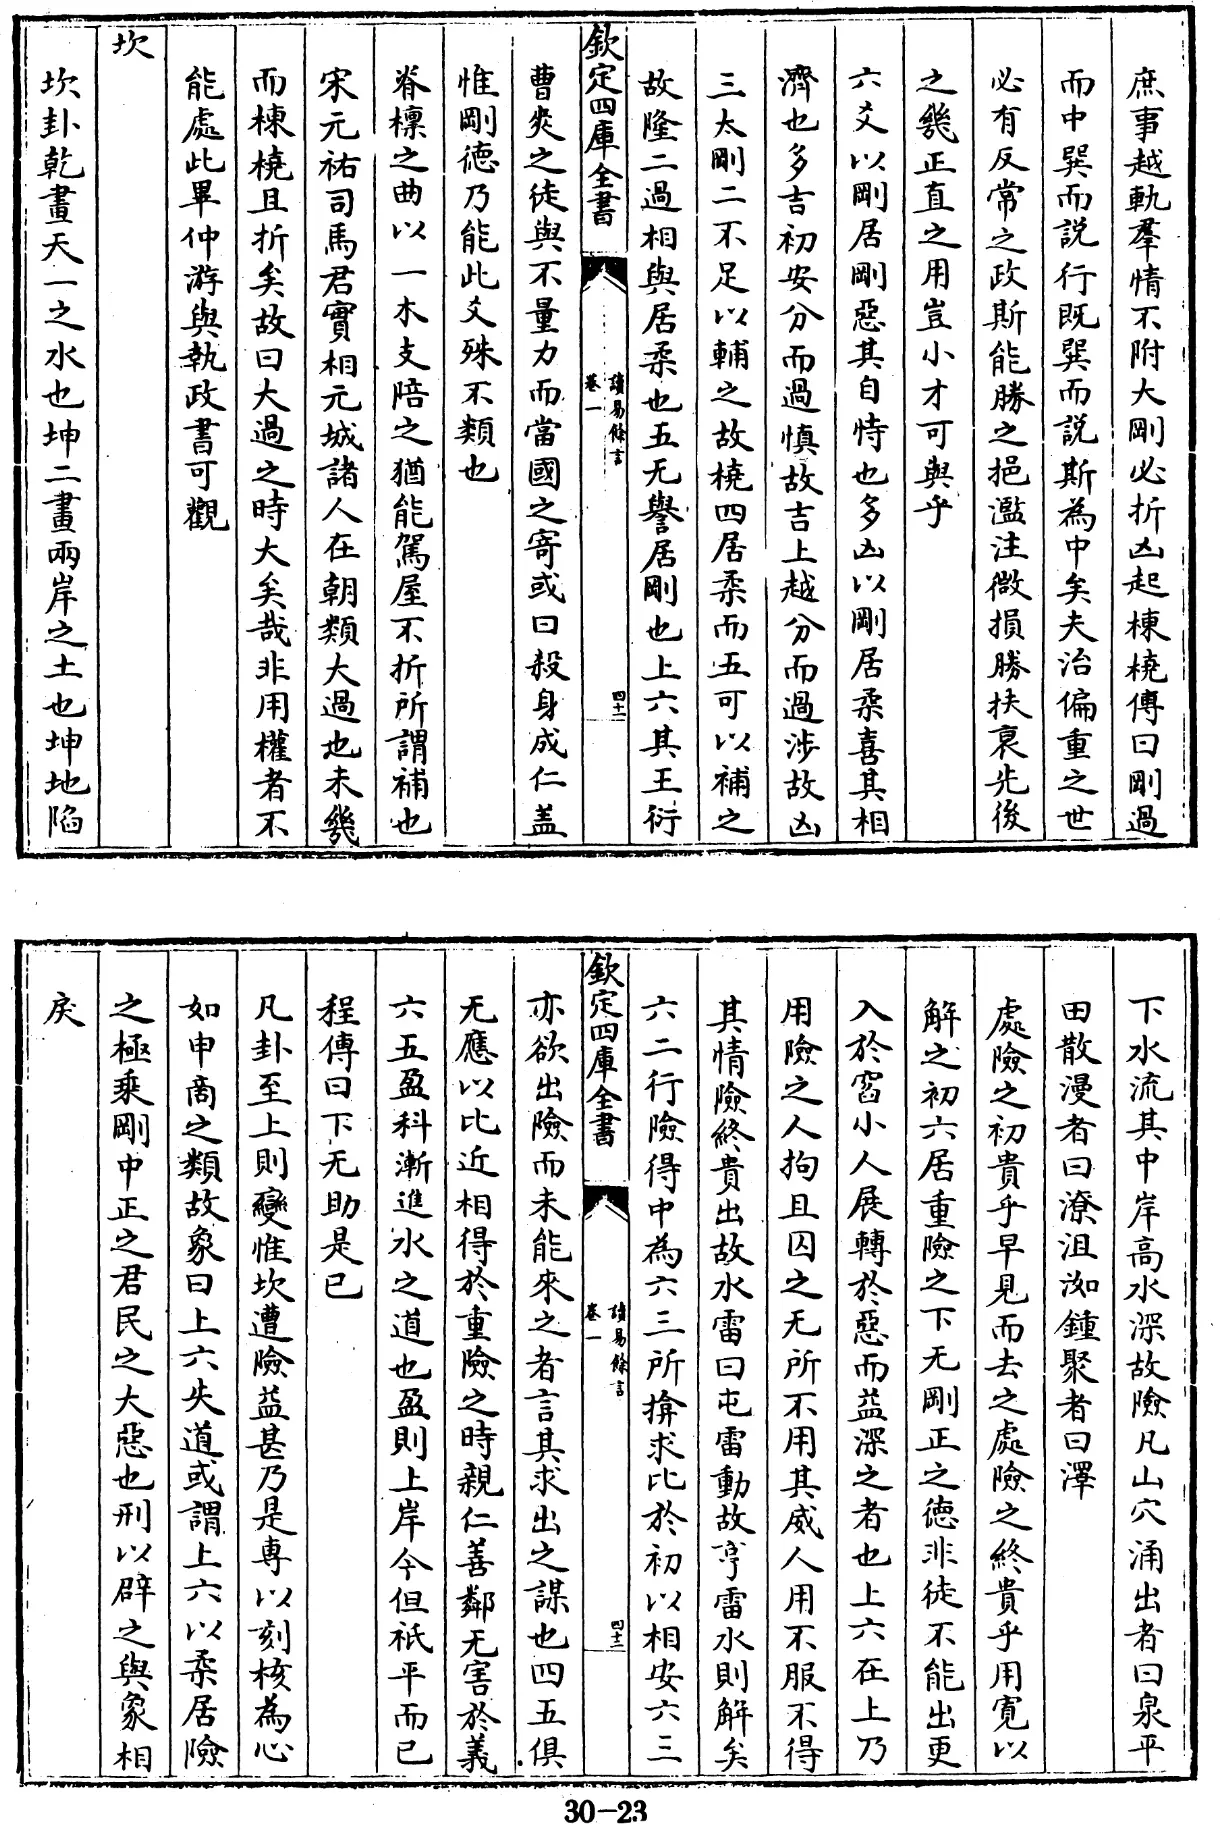 庶事越軌羣情不附大剛必折凶起棟橈傳曰剛過
而中巽而說行既巽而說斯為中矣夫治偏重之世
必有反常之政斯能勝之挹濫注微損勝扶衰先後
之幾正直之用豈小才可與乎
六爻以剛居剛惡其自恃也多凶以剛居柔喜其相
濟也多吉初安分而過慎故吉上越分而過涉故凶
三太剛二不足以輔之故橈四居柔而五可以補之
故隆二過相與居柔也五无譽居剛也上六其王衍
欽定四庫全書
讀易餘言
卷一
四十二
曹爽之徒與不量力而當國之寄或曰殺身成仁蓋
惟剛德乃能此爻殊不類也
脊檩之曲以一木支陪之猶能駕屋不折所謂補也
宋元祐司馬君實相元城諸人在朝類大過也未幾
而棟橈且折矣故曰大過之時大矣哉非用權者不
能處此畢仲游與執政書可觀
坎
坎卦乾畫天一之水也坤二畫兩岸之土也坤地陷
下水流其中岸高水深故險凡山穴涌出者曰泉平
田散漫者曰潦沮洳鍾聚者曰澤
處險之初貴乎早見而去之處險之終貴乎用寛以
解之初六居重險之下无剛正之德非徒不能出更
入於窞小人展轉於惡而益深之者也上六在上乃
用險之人拘且囚之无所不用其威人用不服不得
其情險終貴出故水雷曰屯雷動故亨雷水則解矣
六二行險得中為六三所揜求比於初以相安六三
欽定四庫全書
讀易餘言
卷一
四十三
亦欲出險而未能來之者言其求出之謀也四五俱
无應以比近相得於重險之時親仁善鄰无害於義
六五盈科漸進水之道也盈則上岸今但祇平而已
程傳曰下无助是已
凡卦至上則變惟坎遭險益甚乃是專以刻核為心
如申商之類故象曰上六失道或謂上六以柔居險
之極乘剛中正之君民之大惡也刑以辟之與象相
戾
30-23